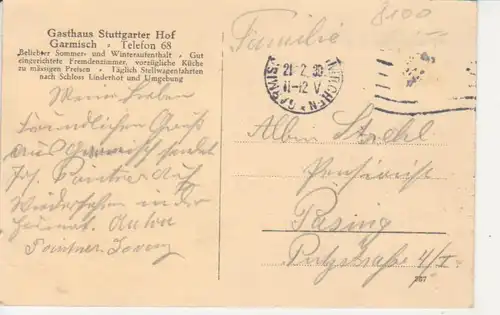 Gasthaus Stuttgarter Hof
Garmisch • Telefon 68
Beliebter Sommer- und Winteraufenthalt • Gut
eingerichtete Fremdenzimmer, vorzügliche Küche
zu mässigen Preisen • Täglich Stellwagenfahrten
nach Schloss Linderhof und Umgebung
Meine Lieben
freundlichen Gruß
aus Garmisch sendet
Pointner Auf
Wiedersehen in der
Heimat. Anton
Pointner
8100
Familie
21. 2. 30
11-12 V
MÜNCHEN
GARMISCH
Albin
Pensionist
Pasing
4/I